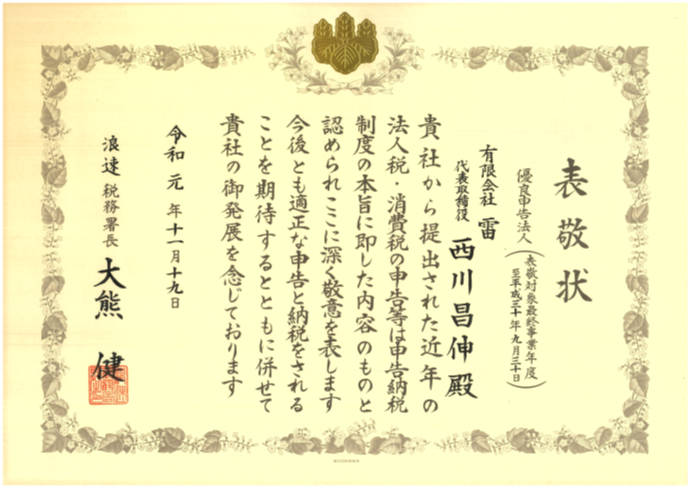 表敬状
優良申告法人
表敬対象最終事業年度
至平成三十年九月三十日
有限会社 雷
代表取締役 西川昌伸殿
貴社から提出された近年の
法人税・消費税の申告等は申告納税
制度の本旨に即した内容のものと
認められここに深く敬意を表します
今後とも適正な申告と納税をされる
ことを期待するとともに併せて
貴社の御発展を念じております
令和元年十一月十九日
浪速税務署長 大熊 健